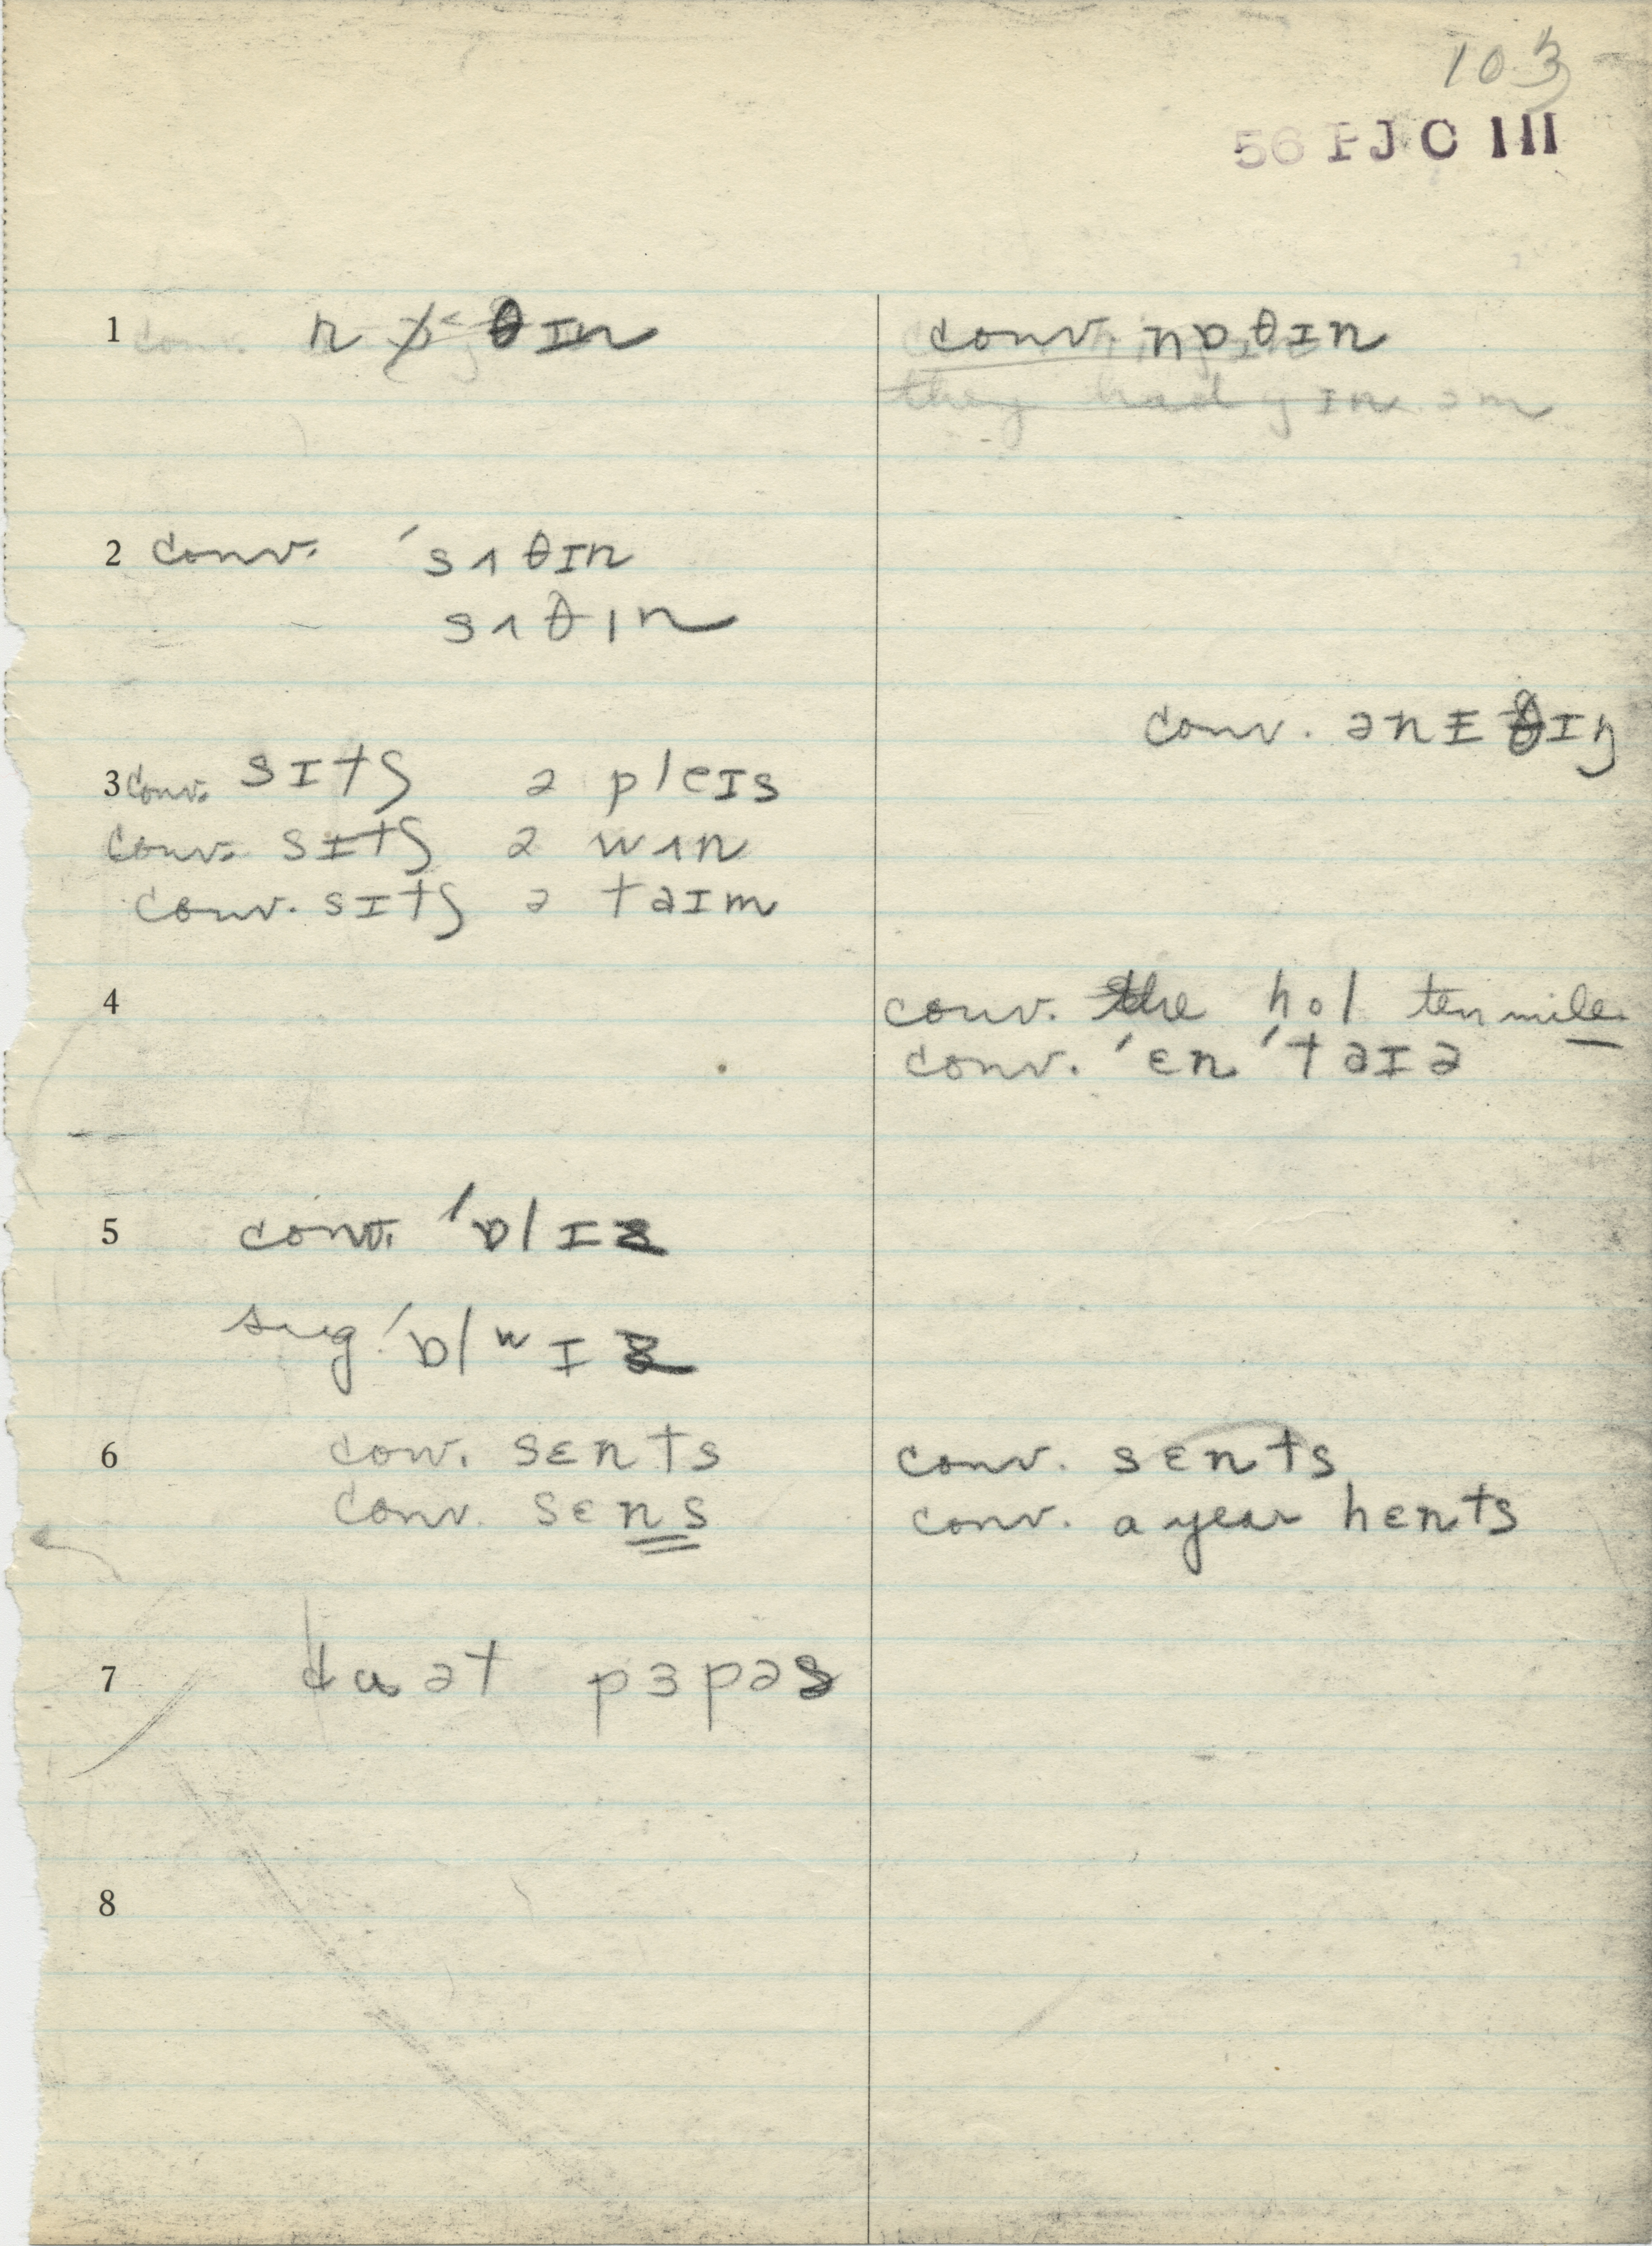 103
56 PJC III
1 nɒ˂θɪn
conv. nɒθɪn
they had gɪn əm
2 conv. ˈsʌθɪn
sʌθɪn
conv. ənɪθɪŋ
3 conv. sɪtʃ ə pleɪs
conv. sɪtʃ ə wʌn
conv. sɪtʃ ə taɪm
4 conv. the hol ten mile
conv. ˈɛnˈtaɪə
5 conv. ˈɒlɪz
sug. ˈɒlʷɪz
6 conv. sɛnts conv. sɛnts
conv. sɛns conv. a year hɛnts
7 du ət pɜpəs
8